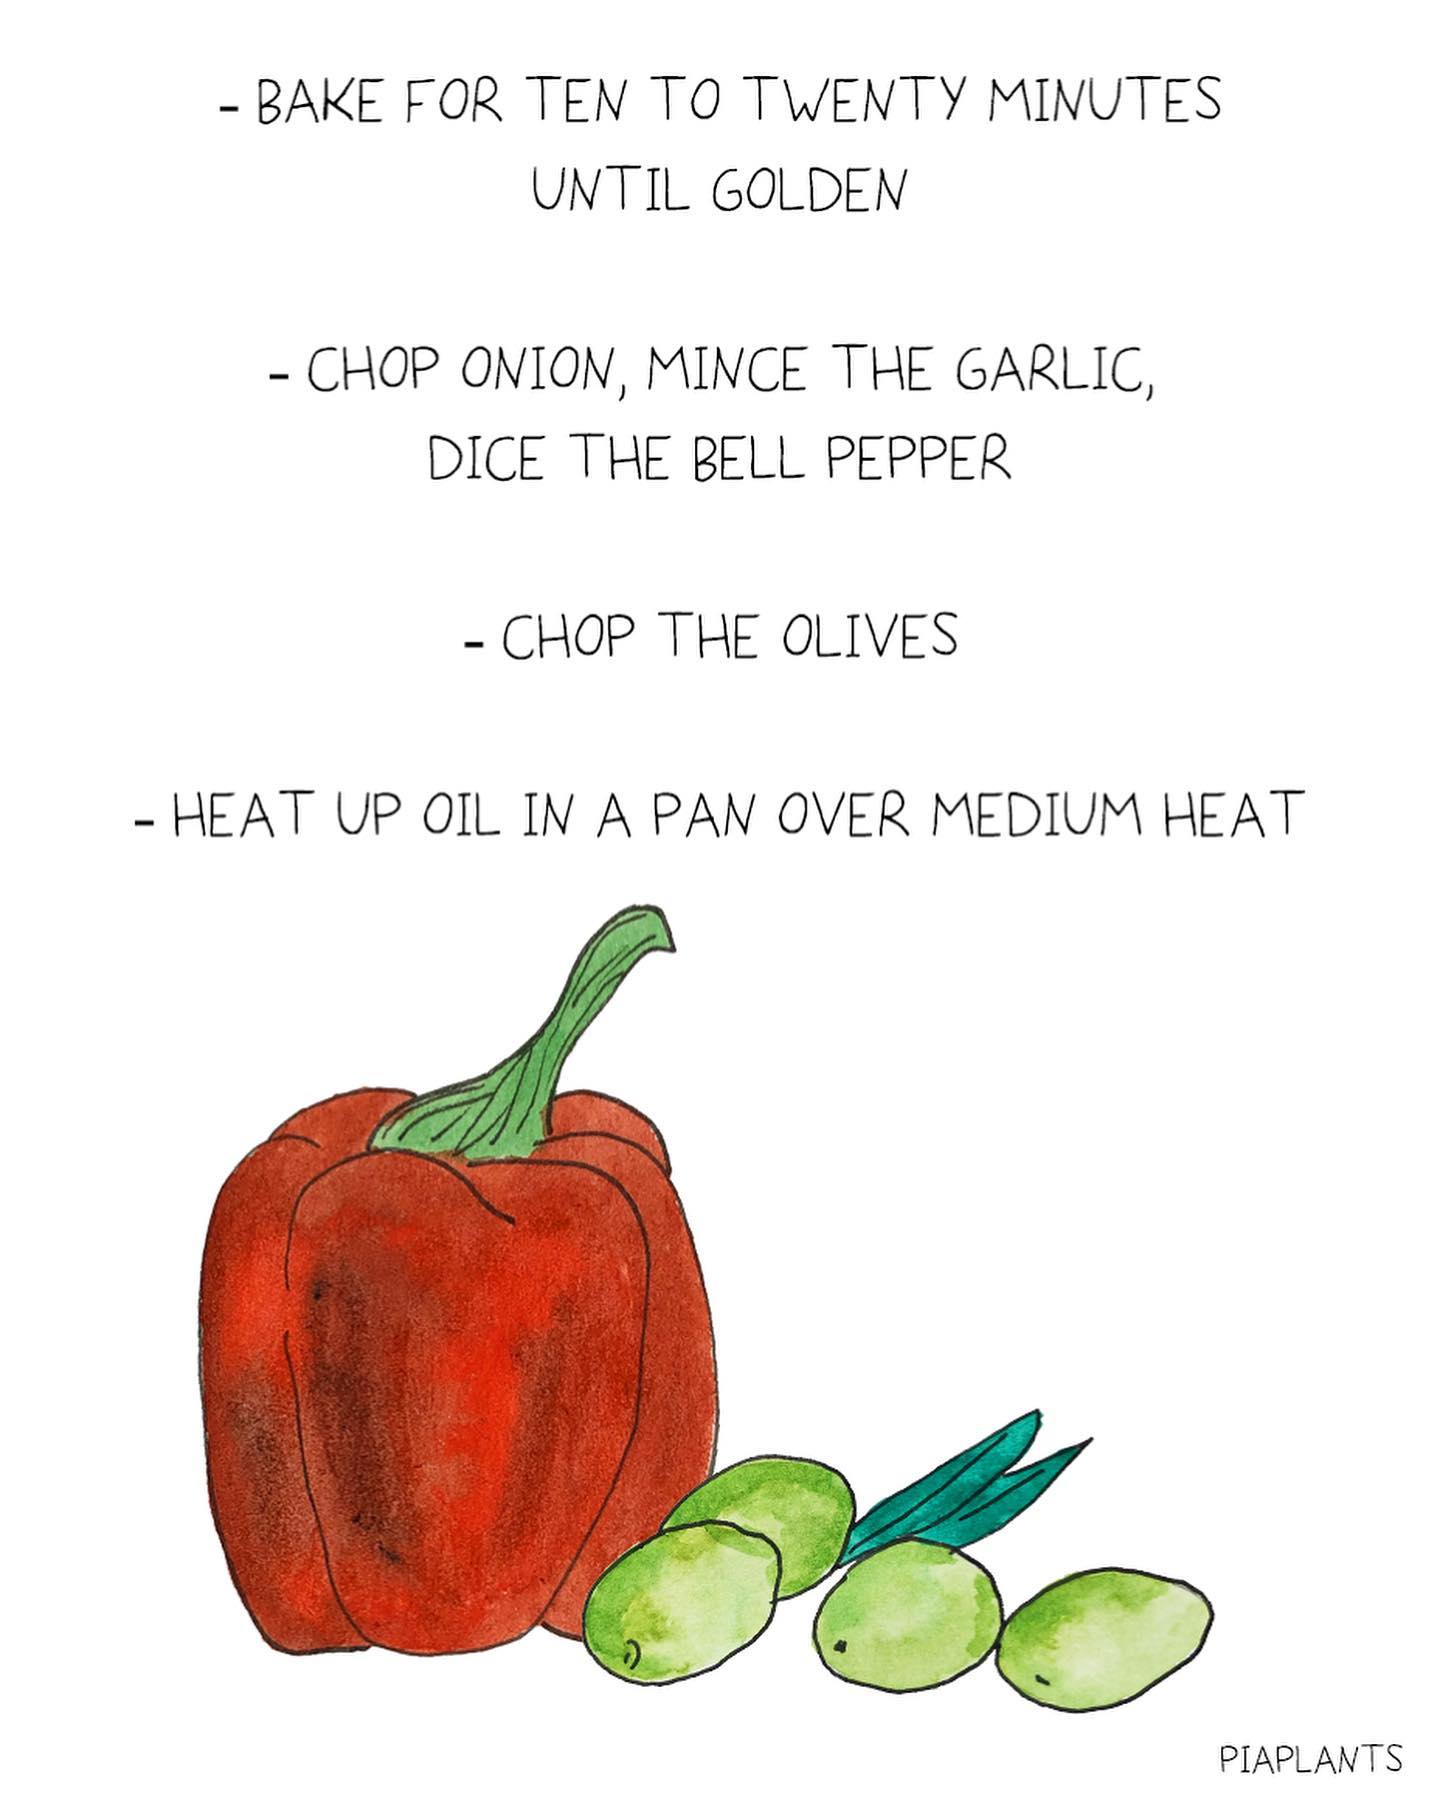 - BAKE FOR TEN TO TWENTY MINUTES
UNTIL GOLDEN
- CHOP ONION, MINCE THE GARLIC,
DICE THE BELL PEPPER
- CHOP THE OLIVES
- HEAT UP OIL IN A PAN OVER MEDIUM HEAT
PIAPLANTS